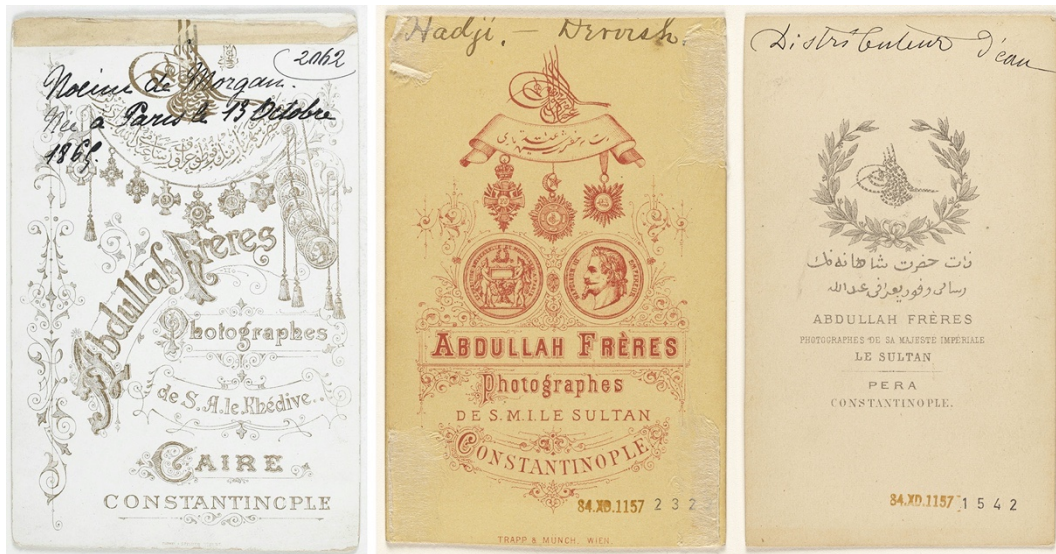 2062
de Morgan.
à Paris le 13 Octobre
Abdullah Frères
Photographes
de S.A. le Khédive..
CAIRE
CONSTANTINOPLE
Hadji. - Dervish.
NAPOLEON III EMPEREUR
ABDULLAH FRÈRES
Photographes
DE S.M.I. LE SULTAN
CONSTANTINOPLE
84.XD.1157 232
TRAPP & MÜNCH. WIEN.
Distributeur d'eau
ذات حضرت شاهانه نك
عبدالله
ABDULLAH FRÈRES
PHOTOGRAPHES DE SA MAJESTE IMPÉRIALE
LE SULTAN
PERA
CONSTANTINOPLE.
84.XD.1157 1542